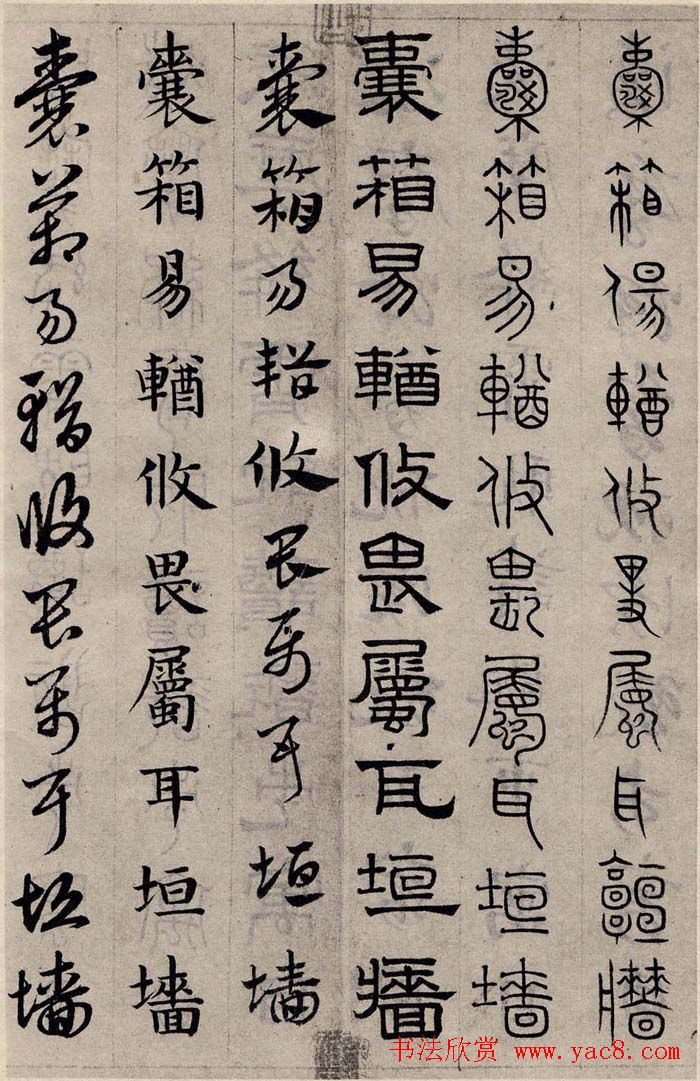 囊箱易輶攸畏屬耳垣牆
囊箱易輶攸畏屬耳垣墻
囊箱易輶攸畏屬耳垣牆
囊箱易輶攸畏屬耳垣墻
囊箱易輶攸畏屬耳垣墻
囊箱易輶攸畏屬耳垣墻
书法欣赏 www.yac8.com